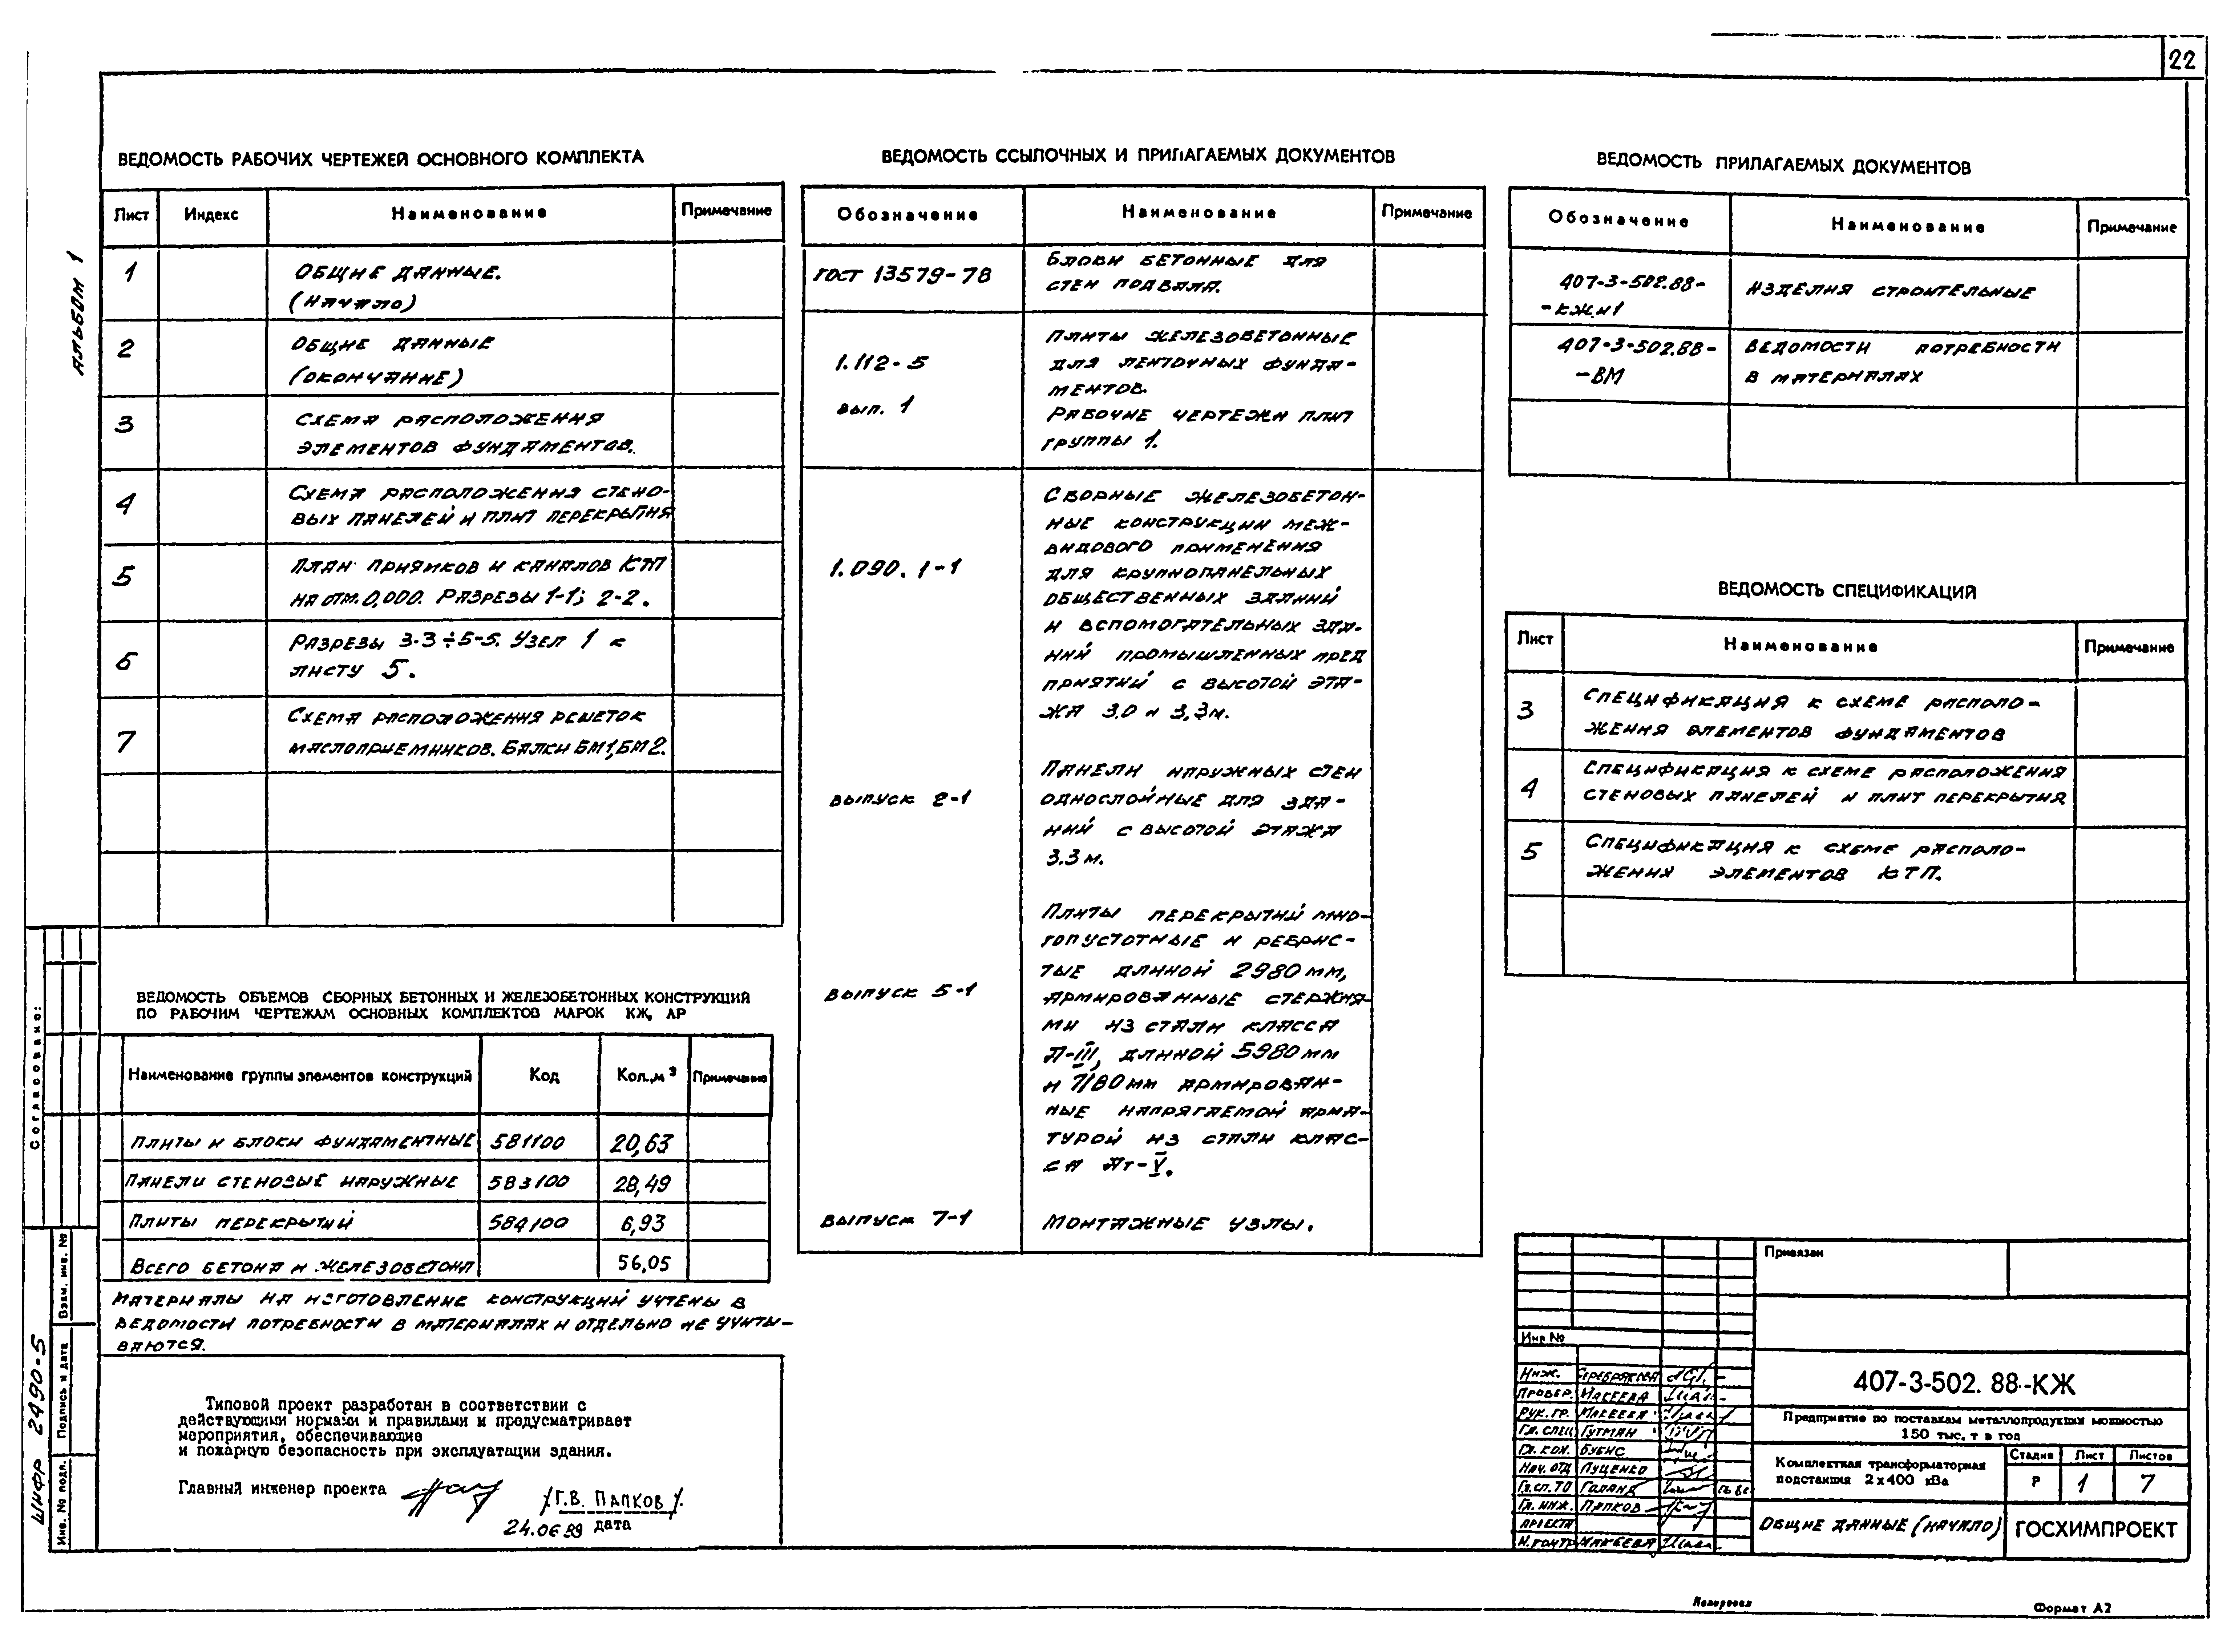 22
Альбом 1
ВЕДОМОСТЬ РАБОЧИХ ЧЕРТЕЖЕЙ ОСНОВНОГО КОМПЛЕКТА
Лист Индекс Наименование Примечание
1 Общие данные.
(начало)
2 Общие данные
(окончание)
3 Схема расположения
элементов фундаментов.
4 Схема расположения стено-
вых панелей и плит перекрытия
5 План приямков и каналов КТП
на отм. 0,000. Разрезы 1-1; 2-2.
6 Разрезы 3-3÷5-5. Узел 1 к
листу 5.
7 Схема расположения решеток
маслоприемников. Балки БМ1, БМ2.
ВЕДОМОСТЬ ОБЪЕМОВ СБОРНЫХ БЕТОННЫХ И ЖЕЛЕЗОБЕТОННЫХ КОНСТРУКЦИЙ
ПО РАБОЧИМ ЧЕРТЕЖАМ ОСНОВНЫХ КОМПЛЕКТОВ МАРОК КЖ, АР
Наименование группы элементов конструкций Код Кол., м³ Примечание
Плиты и блоки фундаментные 581100 20,63
Панели стеновые наружные 583100 28,49
Плиты перекрытий 584100 6,93
Всего бетона и железобетона 56,05
Материалы на изготовление конструкций учтены в
ведомости потребности в материалах и отдельно не учиты-
ваются.
Типовой проект разработан в соответствии с
действующими нормами и правилами и предусматривает
мероприятия, обеспечивающие
и пожарную безопасность при эксплуатации здания.
Главный инженер проекта /Г.В. Папков/.
24.06.89 дата
ВЕДОМОСТЬ ССЫЛОЧНЫХ И ПРИЛАГАЕМЫХ ДОКУМЕНТОВ
Обозначение Наименование Примечание
ГОСТ 13579-78 Блоки бетонные для
стен подвала.
1.112-5
вып. 1
Плиты железобетонные
для ленточных фунда-
ментов.
Рабочие чертежи плит
группы 1.
1.090.1-1
Сборные железобетон-
ные конструкции меж-
видового применения
для крупнопанельных
общественных зданий
и вспомогательных зда-
ний промышленных пред
приятий с высотой эта-
жа 3.0 и 3,3м.
выпуск 2-1
Панели наружных стен
однослойные для зда-
ний с высотой этажа
3.3м.
выпуск 5-1
Плиты перекрытий мно-
гопустотные и ребрис-
тые длиной 2980мм,
армированные стержня-
ми из стали класса
А-III, длиной 5980мм
и 7180мм армирован-
ные напрягаемой арма-
турой из стали клас-
са Ат-V.
выпуск 7-1 Монтажные узлы.
ВЕДОМОСТЬ ПРИЛАГАЕМЫХ ДОКУМЕНТОВ
Обозначение Наименование Примечание
407-3-502.88-
-КЖИ1
Изделия строительные
407-3-502.88-
-ВМ
Ведомости потребности
в материалах
ВЕДОМОСТЬ СПЕЦИФИКАЦИЙ
Лист Наименование Примечание
3 Спецификация к схеме располо-
жения элементов фундаментов
4 Спецификация к схеме расположения
стеновых панелей и плит перекрытия
5 Спецификация к схеме располо-
жения элементов КТП.
Привязан
Инв №
Инж. Серебрякова
Провер. Макеева
Рук. гр. Макеева
Гл. спец Гутман
Гл. кон. Бубис
Нач. отд Луценко
Гл. сп. ТО
Гл. инж. Папков
проекта
Н. контр Макеева
407-3-502. 88-КЖ
Предприятие по поставкам металлопродукции мощностью
150 тыс. т в год
Комплектная трансформаторная
подстанция 2х400 кВа
Стадия Лист Листов
Р 1 7
Общие данные (начало) ГОСХИМПРОЕКТ
Согласовано:
Взам. инв. №
Подпись и дата
Инв. № подл.
шифр 2490-5
Копировал
Формат А2